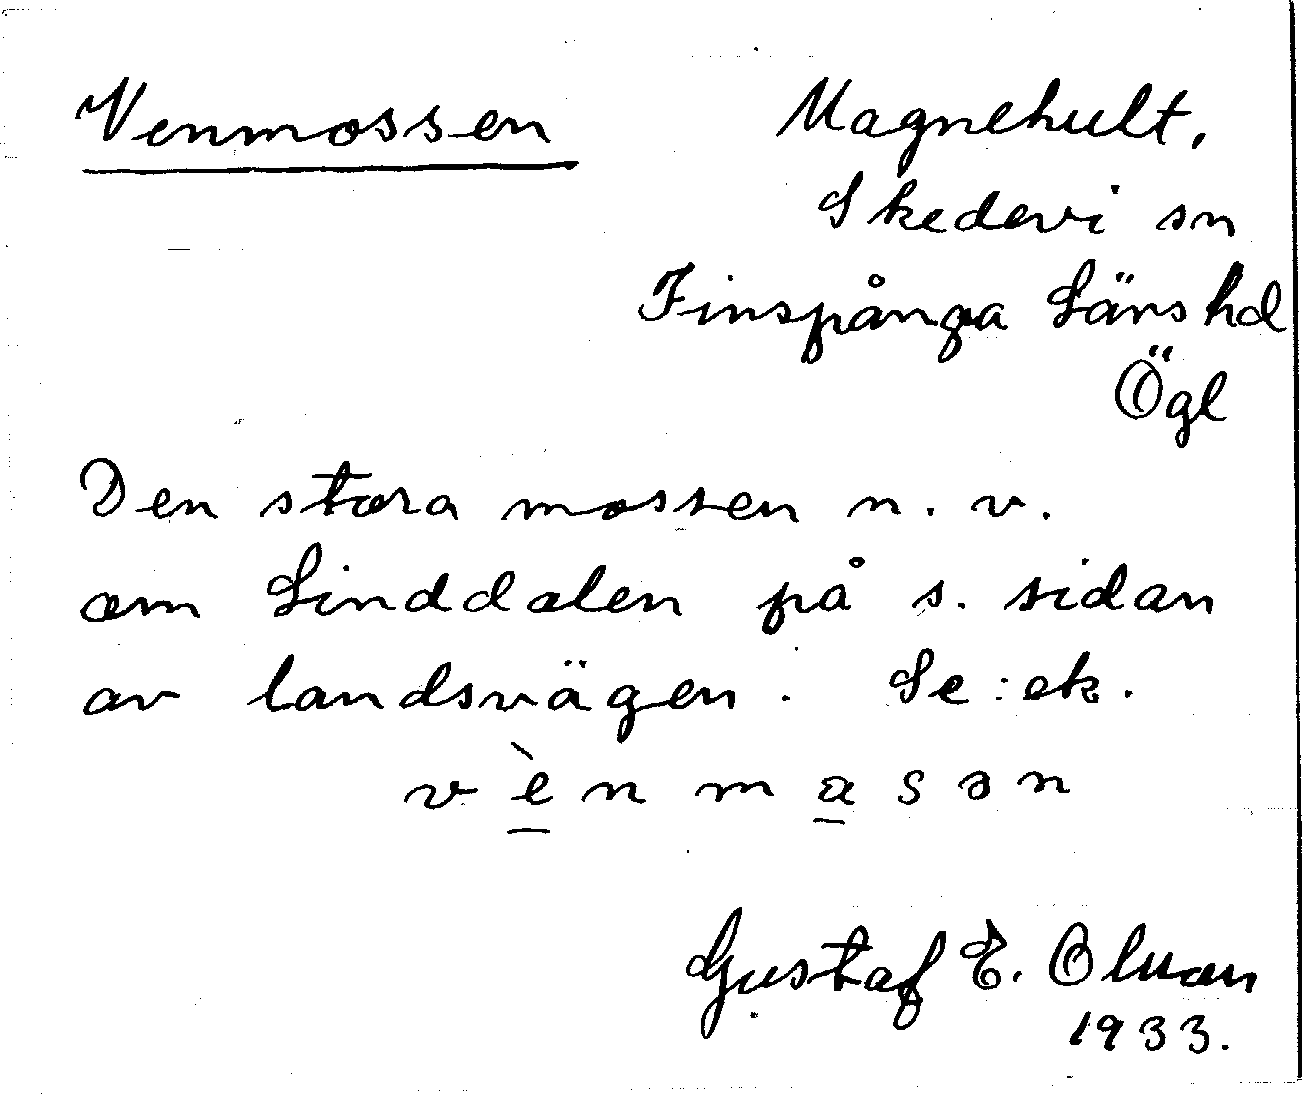 Venmossen
Magnehult,
Skedevi sn
Finspånga Läns hd
Ögl
Den stora mossen n. v.
om Linddalen på s. sidan
av landsvägen. Se: ek.
v è n m a s ə n
Gustaf E.
1933.